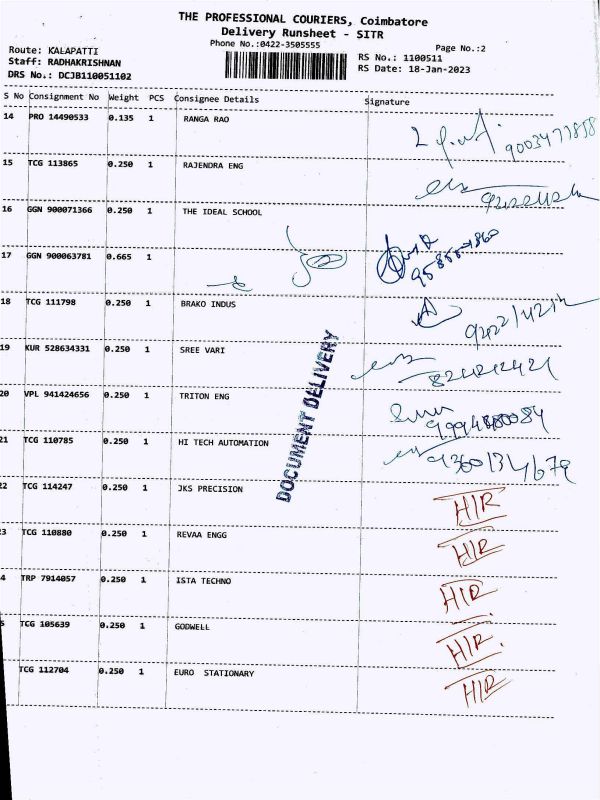 THE PROFESSIONAL COURIERS, Coimbatore
Delivery Runsheet - SITR
Phone No.:0422-3505555
Page No.:2
Route: KALAPATTI
Staff: RADHAKRISHNAN
DRS No.: DCJB110051102
RS No.: 1100511
RS Date: 18-Jan-2023
S No Consignment No Weight PCS Consignee Details Signature
14 PRO 14490533 0.135 1 RANGA RAO
15 TCG 113865 0.250 1 RAJENDRA ENG
16 GGN 900071366 0.250 1 THE IDEAL SCHOOL
17 GGN 900063781 0.665 1
18 TCG 111798 0.250 1 BRAKO INDUS
19 KUR 528634331 0.250 1 SREE VARI
20 VPL 941424656 0.250 1 TRITON ENG
21 TCG 110785 0.250 1 HI TECH AUTOMATION
DOCUMENT DELIVERY
22 TCG 114247 0.250 1 JKS PRECISION HIR
23 TCG 110880 0.250 1 REVAA ENGG HIR
4 TRP 7914057 0.250 1 ISTA TECHNO HIR
5 TCG 105639 0.250 1 GODWELL HIR.
TCG 112704 0.250 1 EURO STATIONARY HIR